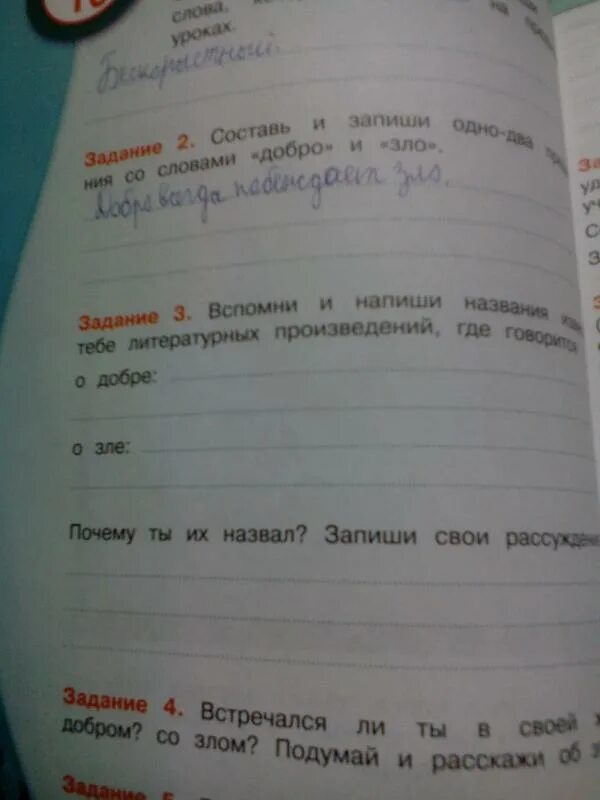 10
слова,
на
уроках.
Бескорыстный.
Задание 2. Составь и запиши одно-два
ния со словами «добро» и «зло».
Добро всегда побеждает зло.
Задание 3. Вспомни и напиши названия
тебе литературных произведений, где говорится
о добре:
о зле:
Почему ты их назвал? Запиши свои рассужден
Задание 4. Встречался ли ты в своей
добром? со злом? Подумай и расскажи об
Задание 5.
За
уд
уч
С
З